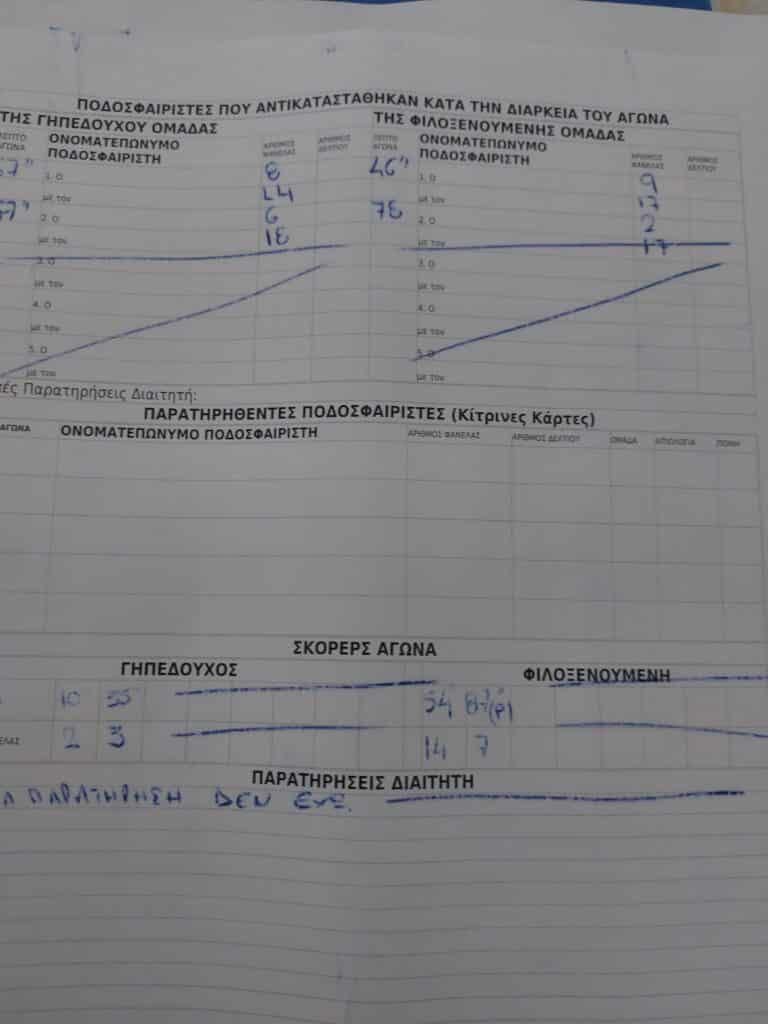 ΠΟΔΟΣΦΑΙΡΙΣΤΕΣ ΠΟΥ ΑΝΤΙΚΑΤΑΣΤΑΘΗΚΑΝ ΚΑΤΑ ΤΗΝ ΔΙΑΡΚΕΙΑ ΤΟΥ ΑΓΩΝΑ
ΤΗΣ ΓΗΠΕΔΟΥΧΟΥ ΟΜΑΔΑΣ ΤΗΣ ΦΙΛΟΞΕΝΟΥΜΕΝΗΣ ΟΜΑΔΑΣ
ΛΕΠΤΟ ΑΓΩΝΑ ΟΝΟΜΑΤΕΠΩΝΥΜΟ ΠΟΔΟΣΦΑΙΡΙΣΤΗ ΑΡΙΘΜΟΣ ΦΑΝΕΛΑΣ ΑΡΙΘΜΟΣ ΔΕΛΤΙΟΥ ΛΕΠΤΟ ΑΓΩΝΑ ΟΝΟΜΑΤΕΠΩΝΥΜΟ ΠΟΔΟΣΦΑΙΡΙΣΤΗ ΑΡΙΘΜΟΣ ΦΑΝΕΛΑΣ ΑΡΙΘΜΟΣ ΔΕΛΤΙΟΥ
1. Ο 8 46" 1. Ο 9
με τον 14 με τον 17
2. Ο 6 78 2. Ο 2
με τον 18 με τον 17
3. Ο 3. Ο
με τον με τον
4. Ο 4. Ο
με τον με τον
5. Ο 5. Ο
με τον με τον
Παρατηρήσεις Διαιτητή:
ΠΑΡΑΤΗΡΗΘΕΝΤΕΣ ΠΟΔΟΣΦΑΙΡΙΣΤΕΣ (Κίτρινες Κάρτες)
ΑΓΩΝΑ ΟΝΟΜΑΤΕΠΩΝΥΜΟ ΠΟΔΟΣΦΑΙΡΙΣΤΗ ΑΡΙΘΜΟΣ ΦΑΝΕΛΑΣ ΑΡΙΘΜΟΣ ΔΕΛΤΙΟΥ ΟΜΑΔΑ ΑΙΤΙΟΛΟΓΙΑ ΠΟΙΝΗ
ΣΚΟΡΕΡΣ ΑΓΩΝΑ
ΓΗΠΕΔΟΥΧΟΣ ΦΙΛΟΞΕΝΟΥΜΕΝΗ
10 55 54
2 3 14 7
ΠΑΡΑΤΗΡΗΣΕΙΣ ΔΙΑΙΤΗΤΗ
ΠΑΡΑΤΗΡΗΣΗ ΔΕΝ